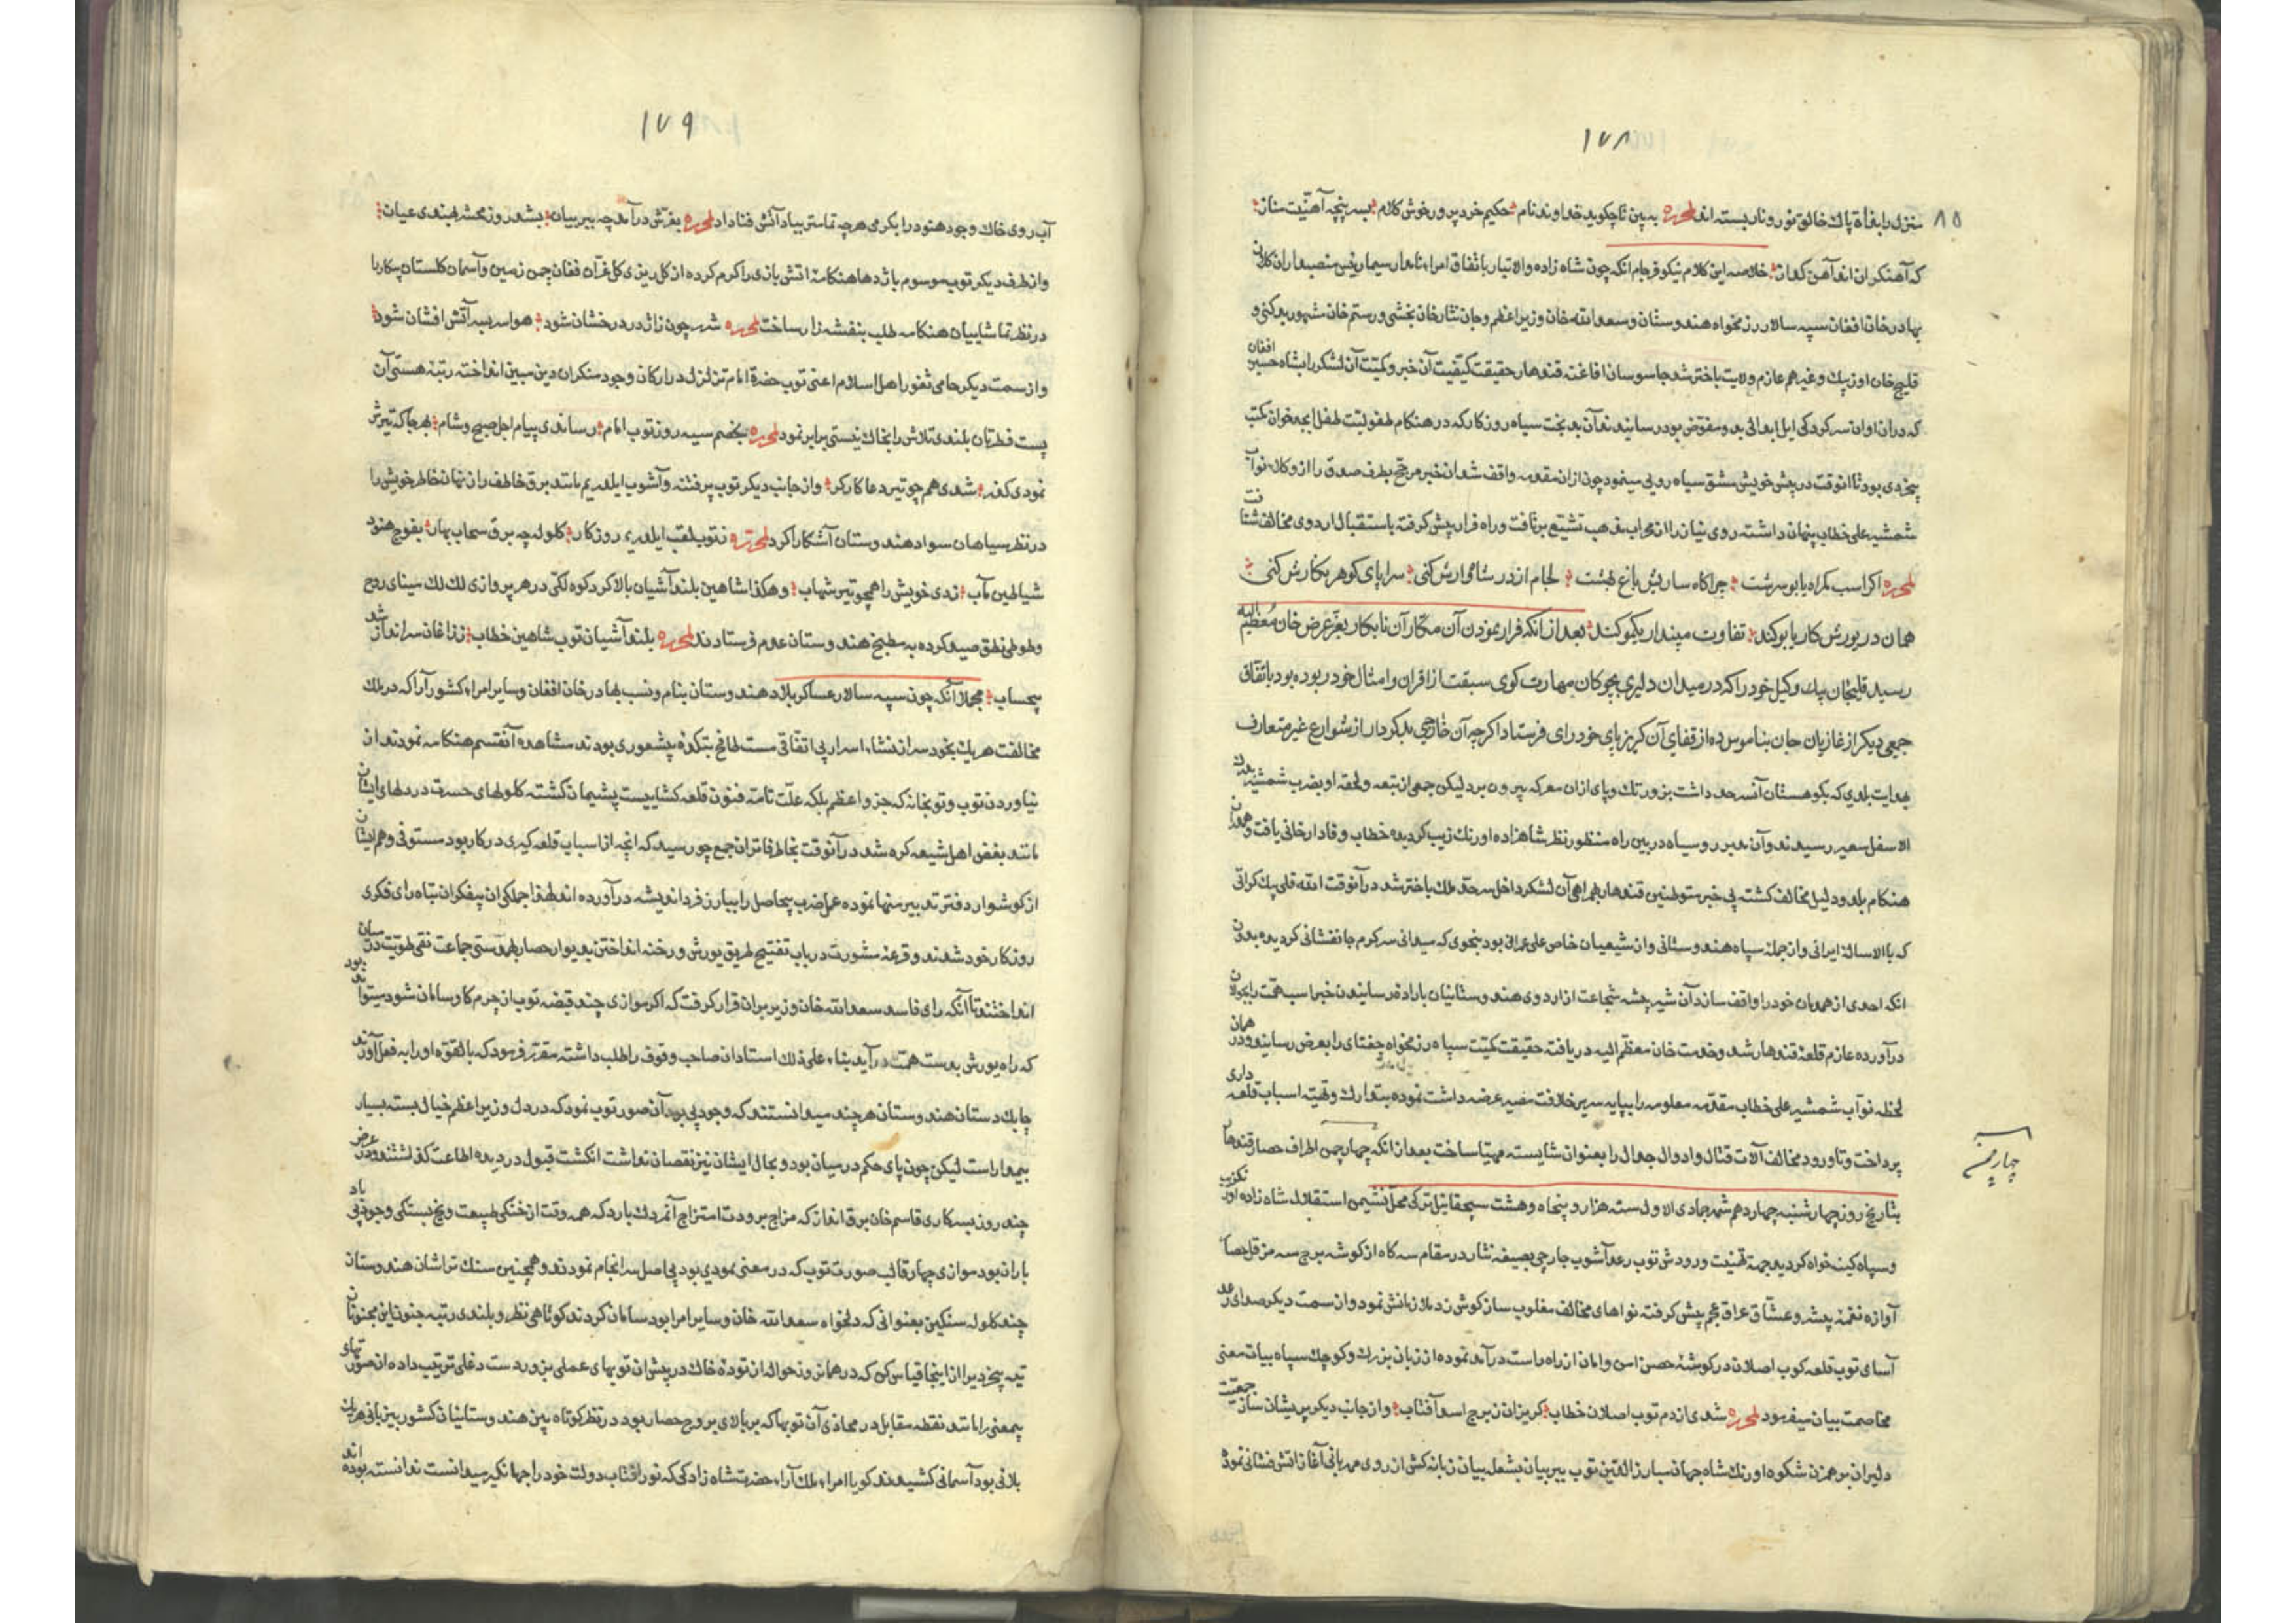 ١٧٨
٨٥
منزل را بفأة پاك خالق نور و نار بسته اند لمحرره به بین تا چکوید خداوند نام حکیم خرد پرور خوش کلام بسر پنجه آهنیّت ستان
که آهنکران اند آهن کعان خلاصه این کلام نیکو فرجام انکه چون شاه زاده والاتبار باتفاق امراء نامدار سیما رئیس منصبداران کلان
بهادر خان افغان سپه سالار رزمخواه هندوستان و سعد الله خان وزیر اعظم و جان نثار خان بخشی و رستم خان مشهور بدکنی و
قلیج خان اوزبك و غیرهم عازم ولایت باختر شد جاسوسان افاغنه قندهار حقیقت کیفیت آن خبر و کمیّت آن لشکر را بشاه حسین افغان
که دران اوان سرکردکی ایل ابدالی بدو مفوّض بود رسانیدند آن بد بخت سیاه روزکار که در هنکام طفولیّت طفل ابجد خوان مکتب
بیخردی بود تا انوقت در پیش خویش مشق سیاه رویی مینمود چون ازان مقدمه واقف شد ان خبر مرجّح بطرف صدق را از وکلاء نوّاب
شمشیر علی خطاب پنهان داشته روی نیاز را از محراب مذهب تشیّع برتافت و راه فرار پیش کرفته باستقبال اردوی مخالف شتافت
لمحرره اکر اسب مکراه یابو سرشت چراکاه سازیش باغ بهشت لجام از در شاهوارش کنی سراپای کوهر نکارش کنی
همان در یورش کار یابو کند تفاوت مپندار نیکو کند بعد از انکه فرار نمودن آن مکّار آن نابکار بعزّ عرض خان معظم الیه
رسید قلیخان بیك وکیل خود را که در میدان دلیری بچوکان مهارت کوی سبقت از اقران و امثال خود ربوده بود باتفاق
جمعی دیکر از غازیان جان بناموس ده از قفای آن کریزپای خود رای فرستاد اکرچه آن خارجی بدکردار از شوارع غیر متعارف
بهدایت بلدی که بکوهستان آنسرحد داشت بزور تك و پای ازان معرکه بیرون برد لیکن جمعی از تبعه و لحقه او بضرب شمشیر بدرك
الاسفل سعیر رسیدند و آن مدبر رو سیاه در بین راه منظور نظر شاهزاده اورنك زیب کردیده خطاب وفادار خانی یافت و همدران
هنکام بلد و دلیل مخالف کشته بی خبر متوطنین قندهار بهمراهی آن لشکر داخل سرحد ملك باختر شد در آنوقت الله قلی بیك کراتی
که بالاساله ایرانی و از جمله سپاه هندوستانی و از شیعیان خاص علی عمرانی بود بنحوی که سیدانی سرکرم جانفشانی کردیده بدون
انکه احدی از همرهان خود را واقف سازد آن شیر بیشه شجاعت از اردوی هندوستانیان باراده رسانیدن خبر اسب همّت را بجولان
درآورده عازم قلعه قندهار شد و خدمت خان معظم الیه دریافته حقیقت کمیّت سپاه رزمخواه چغتای را بعرض رسانید و در همان
لحظه نوّاب شمشیر علی خطاب مقدّمه معلومه را بپایه سریر خلافت مصیر عرضه داشت نموده بتدارك و تهیّه اسباب قلعه داری
پرداخت و تا ورود مخالف آلات قتال و ادوال جدال را بعنوان شایسته مهیّا ساخت بعد از انکه چهار چمن اطراف حصار قندهار
چهار چمن
بتاریخ روز چهارشنبه چهاردهم شهر جمادی الاول سنه هزار و پنجاه و هشت سیچقانئیل ترکی محلّ نشیمن استقلال شاه زاده اورنکزیب
و سپاه کینه خواه کردید بجهة تهنیت ورودش توپ رعد آشوب جارچی بصیغه نثار در مقام سه کاه از کوشه برج سه مزقل حصار
آوازه نغمه پیشرو عشّاق عراق عجم پیش کرفته نواهای مخالف مغلوب ساز کوش زد ملازمانش نمود و از سمت دیکر صدای رعد
آسای توپ قلعه کوب اصلان در کوشه حصن امن و امان از راه راست درآمد نموده از زبان بزرك و کوچك سپاه بیات معنی
مخاصمت بیان میفرمود لمحرره شدی از دم توپ اصلان خطاب کریزان ز برج اسد آفتاب و از جانب دیکر پریشان ساز جمعیّت
دلیران برهم زن شکوه اورنك شاه جهان مبارز القتین توپ ببر بیان بشعله بیان زبانه کش از روی مهربانی آغاز آتش فشانی نموده
١٧٩
آب روی خاك وجود هنود را بکرمی هرچه تمامتر بباد آتش فنا داد لمحرره بغرّش درآمد چه ببر بیان بشد روز محشر بهندی عیان
و از طرف دیکر توپ موسوم باژدها هنکامه اتش بازی را کرم کرده از کل ریزی کل غرّان فغان چمن زمین و آسمان کلستان پیکار با
در نظر تماشاییان هنکامه طلب بنفشه زار ساخت لمحرره شرر چون ز اژدر درخشان شود هوا سربسر آتش افشان شود
و از سمت دیکر حامی ثغور اهل اسلام اعنی توپ حضرة امام تزلزل در ارکان وجود منکران دین مبین انداخته رتبه هستی آن
پست فطرتان بلندی تلاش را بخاك نیستی برابر نمود لمحرره بخصم سیه روز توپ امام رساندی پیام اجل صبح و شام بهرجا که تیرش
نمودی کذر شدی هم چو تیر دعا کارکر و از جانب دیکر توپ پر فتنه و آشوب ایلدرم مانند برق خاطف راز نهان خاطر خویش را
در نظر سیاهان سواد هندوستان آشکارا کرد لمحرره ز توپ ملقب ایلدرم روزکار کلوله چه برق سحاب بهار بفوج هنود
شیاطین مآب زدی خویش را همچو تیر شهاب و هکذا شاهین بلند آشیان بالا کرد کوه لکی در هر پروازی لك لك مینای روح
و طوطی نطق صید کرده به مطبخ هندوستان عدم فرستادند لمحرره بلند آشیان توپ شاهین خطاب ز زاغان سرانداز شد
بیحساب مجملا آنکه چون سپه سالار عساکر بلاد هندوستان بنام و نسب بهادر خان افغان و سایر امراء کشور آرا که در ملك
مخالفت هریك بخود سر از منشاء اسرار بی اتفاقی مست طافح بتکده بیشعوری بودند مشاهده آنقسم هنکامه نمودند از
نیاوردن توپ و توپخانه که جزو اعظم بلکه علّت تامّه فنون قلعه کشاییست پشیمان کشته کلولهای حسرت در دلهای ایشان
مانند بغض اهل شیعه کره شد در آنوقت بخاطر فاتران جمع چو رسید که انچه از اسباب قلعه کیری در کار بود مستوفی وهم ایشان
از کوشوار دفتر تدبیر منها نموده عمل ضرب بیحاصل را ببارز فرد اندیشه درآورده اند لهذا جملکی ان بیفکران تباه رای فکری
روزکار خود شدند و قرعه مشورت در باب تفتیح طریق یورش و رخنه انداختن بدیوار حصار بهمدستی جماعت نقی طویّت در میان
انداختند تا آنکه رای فاسد سعد الله خان وزیر بران قرار کرفت که اکر موازی چند قبضه توپ از جرم کاو سامان شود میتواند بود
که راه یورش بدست همّت درآید بناء علی ذلك استادان صاحب وقوف را طلب داشته مقرّر فرمود که بالقوّه او را به فعل آورند
چابك دستان هندوستان هرچند میدانستند که وجود بی بود آن صور توپ نمود که در دل وزیر اعظم خیال بسته بسیار
بیمدار است لیکن چون پای حکم درمیان بود و بحال ایشان نیز نقصان نداشت انکشت قبول در دیده اطاعت کذاشتند و در عرض
چند روز بسرکاری قاسم خان برق انداز که مزاج برودت امتزاج آنمردك بارد که همه وقت از خنکی طبیعت و یخ بستکی وجود پی باد
باران بود موازی چهار قالب صورت توپ که در معنی نمودی بود بی اصل سرانجام نمودند و همچنین سنك تراشان هندوستان
چند کلوله سنکین بعنوانی که دلخواه سعد الله خان و سایر امرا بود سامان کردند کوتاهی نظر و بلندی رتبه جنون این مجنونان
تیه بیخردیرا از اینجا قیاس کن که در همانروز حواله از توده خاك در پیش ان توپهای عملی بزور دست دغلی ترتیب داده ان صورتهای
بیمعنی را مانند نقطه مقابل در محاذی آن توپها که بر بالای بروج حصار بود در نظر کوتاه بین هندوستانیان کشور بیزبانی هریك
بلائی بود آسمانی کشیدند کویا امراء ملك آراء حضرت شاه زادکی که نور افتاب دولت خود را جهانکیر میدانست ندانسته بوده اند